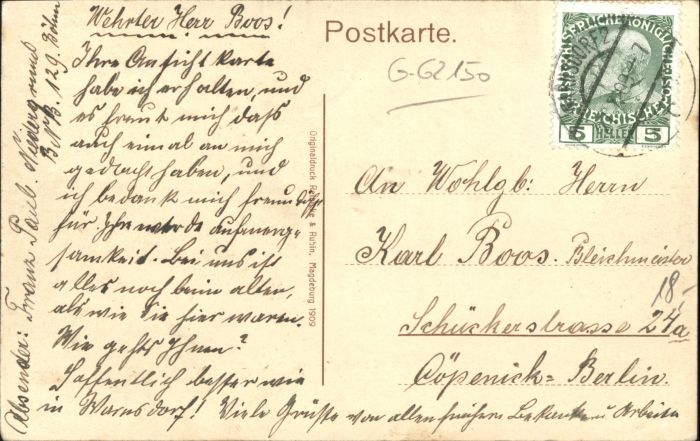 Wehrter Herr Boos!
Ihre Ansicht karte
habe ich erhalten, und
es freut mich daß
auch einmal an mich
gedacht haben, und
ich bedank mich freundlichst
für Ihre werde
Bei uns ist
alles noch beim alten,
als wie Sie hier waren.
Wie gehts Ihnen?
Hoffentlich besser wie
in Warnsdorf! Viele Grüsse von allen frühern Bekannten u Arbeiten
Absender: Franz Paul. Niedergrund
B. N.B. 129. Böhm
Postkarte.
G-G2150
Originaldruck Rubin, Magdeburg 1909
5 HELLER 5
An Wohlgb: Herrn
Karl Boos. Bleichmeister
18,-
Schückerstrasse 24a
Cöpenick = Berlin.